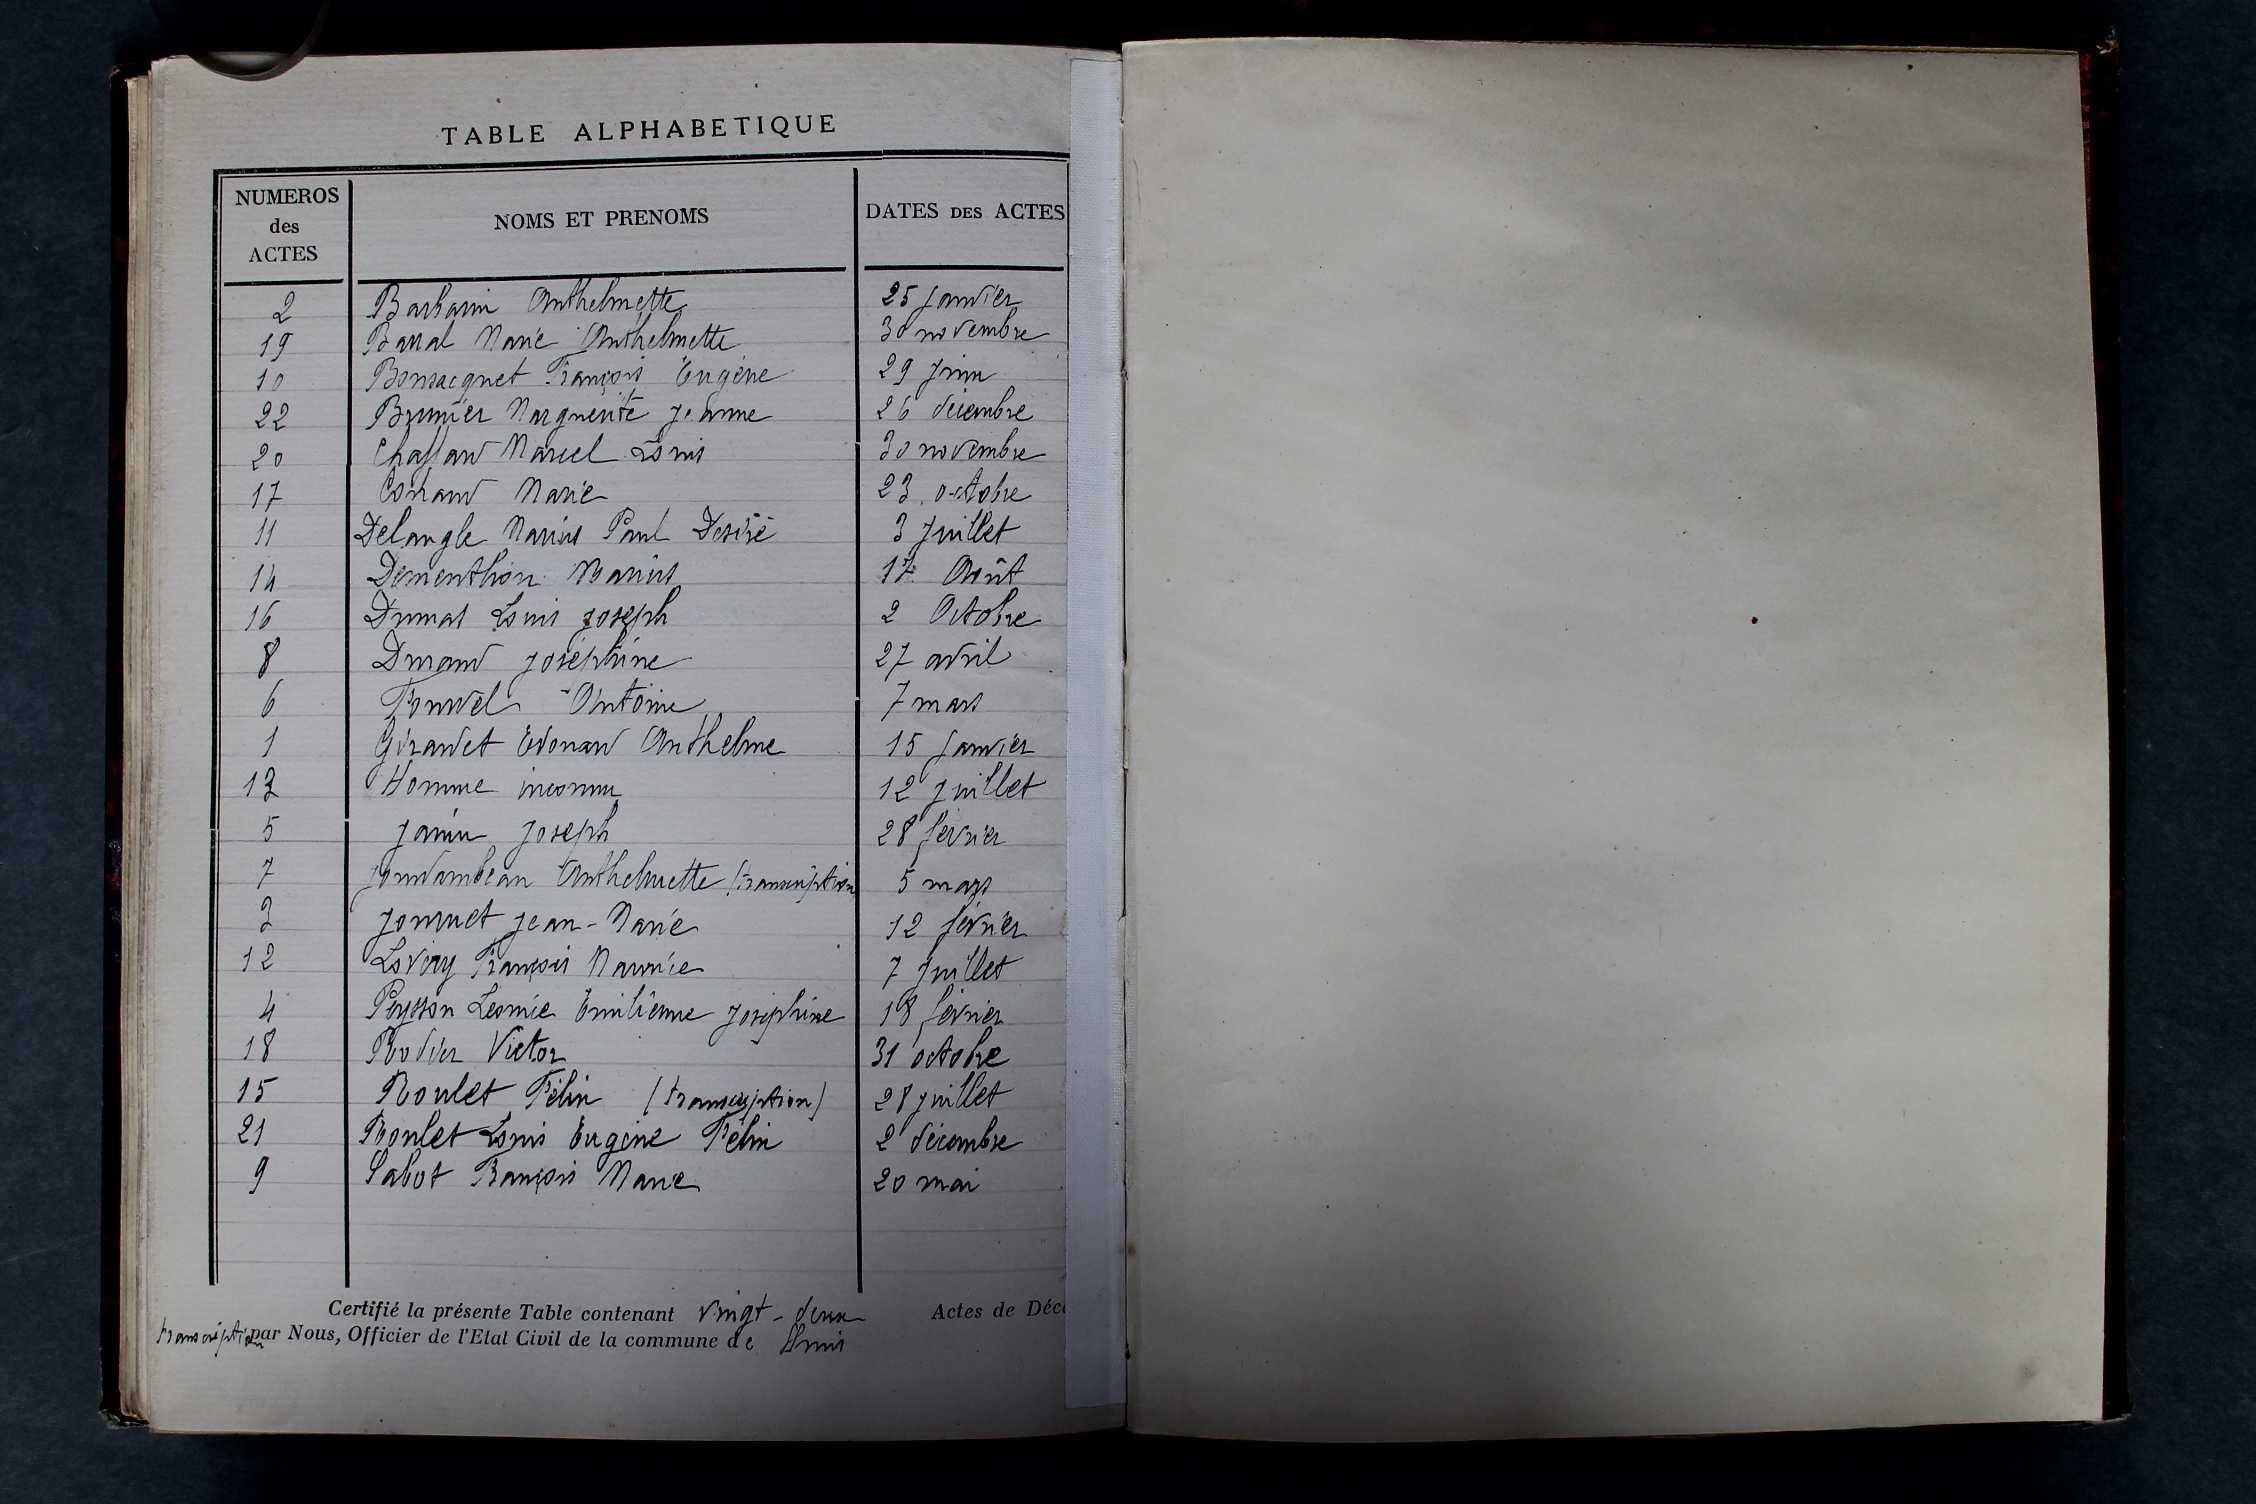 TABLE ALPHABETIQUE
NUMEROS des ACTES NOMS ET PRENOMS DATES DES ACTES
2 Barbarin Anthelmette 25 janvier
19 Barral Marie Anthelmette 30 novembre
10 Bonsacquet François Eugène 29 juin
22 Brunier Marguerite Jeanne 26 décembre
20 Chaffard Marcel Louis 30 novembre
17 Marie 23 octobre
11 Delangle Marius Paul Désiré 3 juillet
14 Dementhon Marius 17 Août
16 Dumas Louis Joseph 2 Octobre
8 Durand Joséphine 27 avril
6 Antoine 7 mars
1 Girardet Edouard Anthelme 15 janvier
13 Homme inconnu 12 juillet
5 Janin Joseph 28 février
7 Anthelmette (transcription 5 mars
3 Jean-Marie 12 février
12 François Maurice 7 juillet
4 Peysson Léonie Emilienne Joséphine 18 février
18 Rodier Victor 31 octobre
15 Roulet Félix (transcription) 28 juillet
21 Roulet Louis Eugène Félix 2 décembre
9 Sabot François Marie 20 mai
Certifié la présente Table contenant vingt-deux Actes de Déc
transcription par Nous, Officier de l'Etat Civil de la commune de